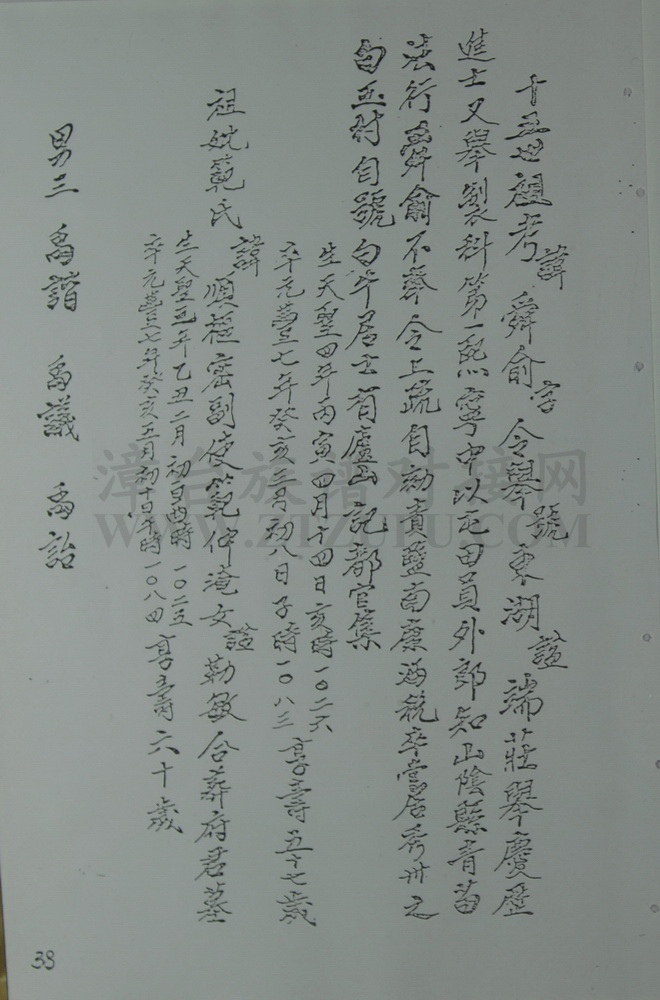 十五世祖考諱舜俞字令舉號東湖諡端莊舉慶歷
進士又舉製科第一熙寧中以屯田員外郎知山陰縣青苗
法行舜俞不奉令上疏自劾責鹽南康酒稅卒嘗居秀州之
白玉村自號白牛居士有廬山記部官集
生天聖四年丙寅四月十四日亥時一〇二六
卒元豐七年癸亥三月初八日子時一〇八三 享壽五十七歲
祖妣範氏諱順樞密副使範仲淹女諡勤敏合葬府君墓
生天聖五年乙丑二月初 時一〇二五
卒元豐七年癸亥五月初十日午時一〇八四 享壽六十歲
男三 禹諧 禹議 禹詒
38
漳台族譜对接网
WWW.ZTZUPU.COM